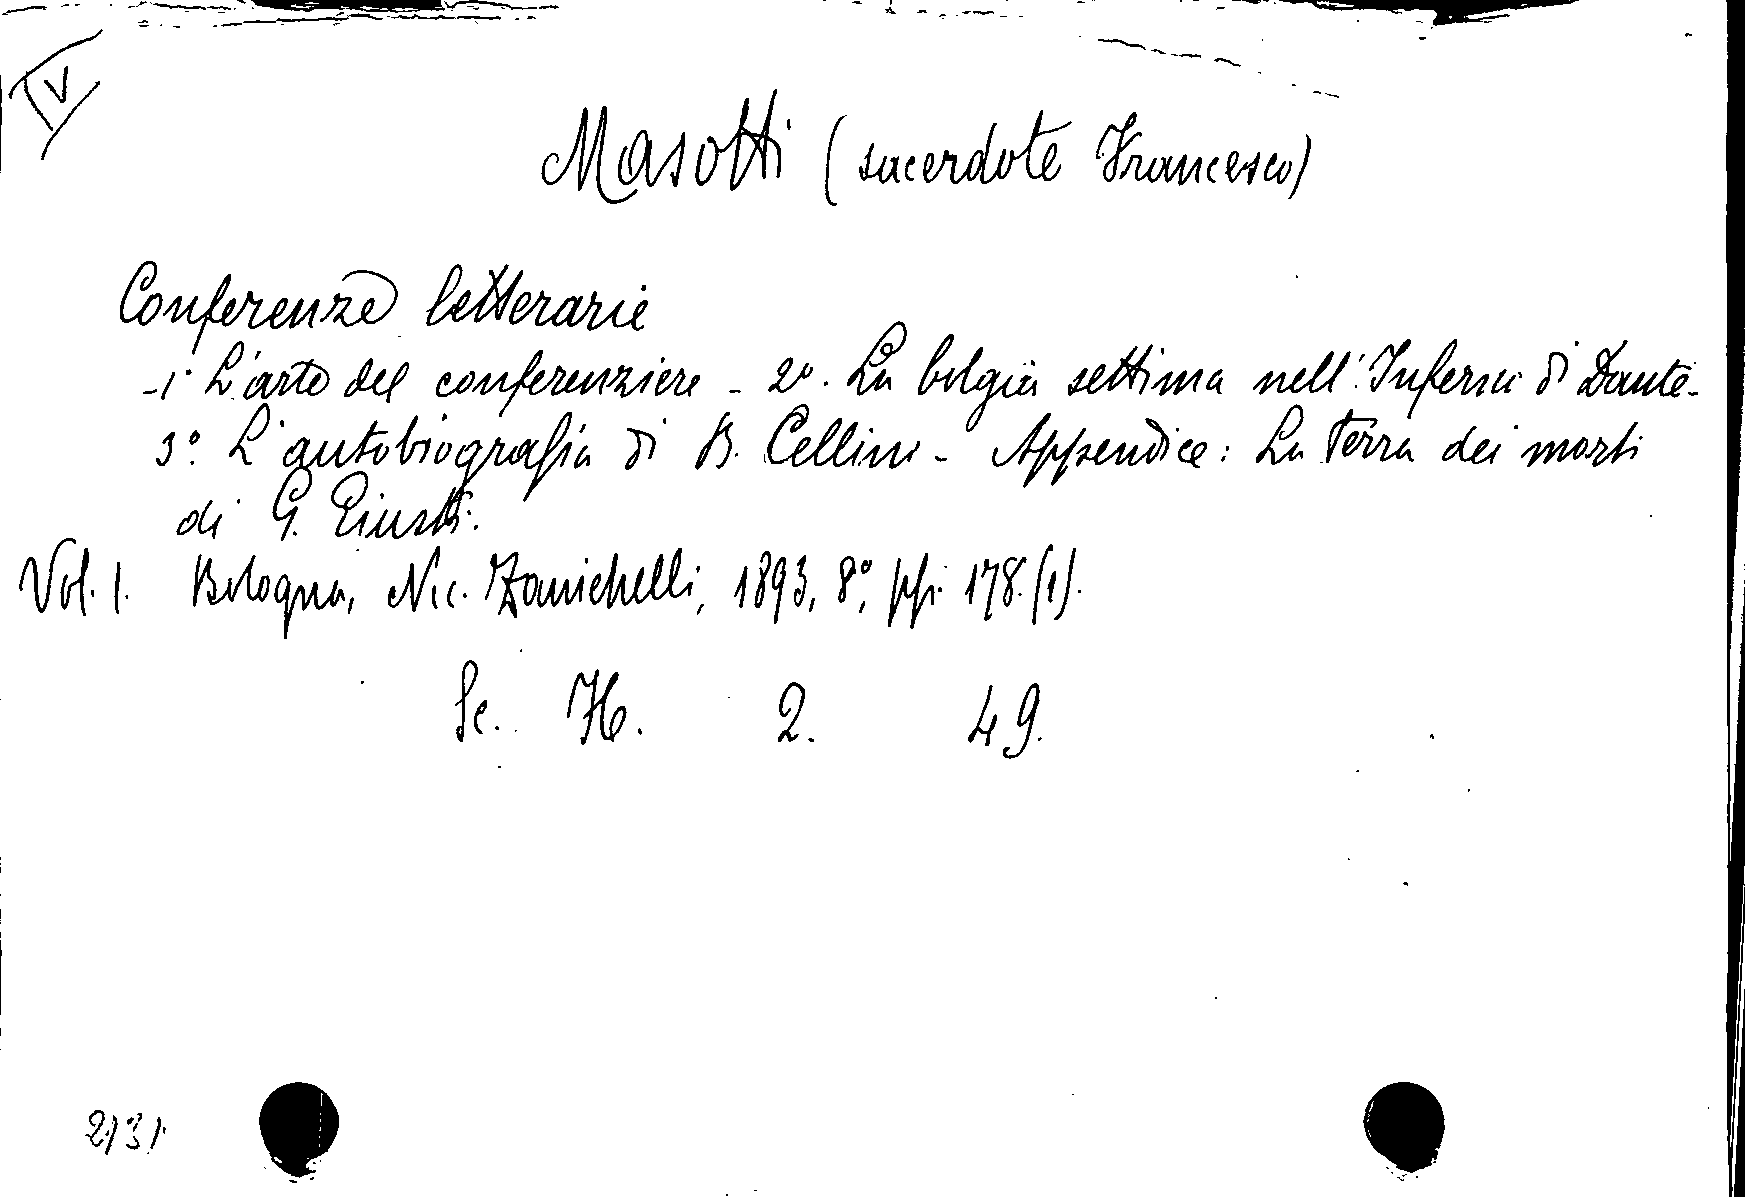 IV
Masotti (sacerdote Francesco)
Conferenze letterarie
-1° L'arte del conferenziere - 2°. La bolgia settima nell'Inferno di Dante-
3°. L'autobiografia di B. Cellini - Appendice: La terra dei morti
di G. Giusti.
Vol. 1. Bologna, Nic. Zanichelli, 1893, 8°, pp. 178.(1).
Sc. H. 2. 49.
2131